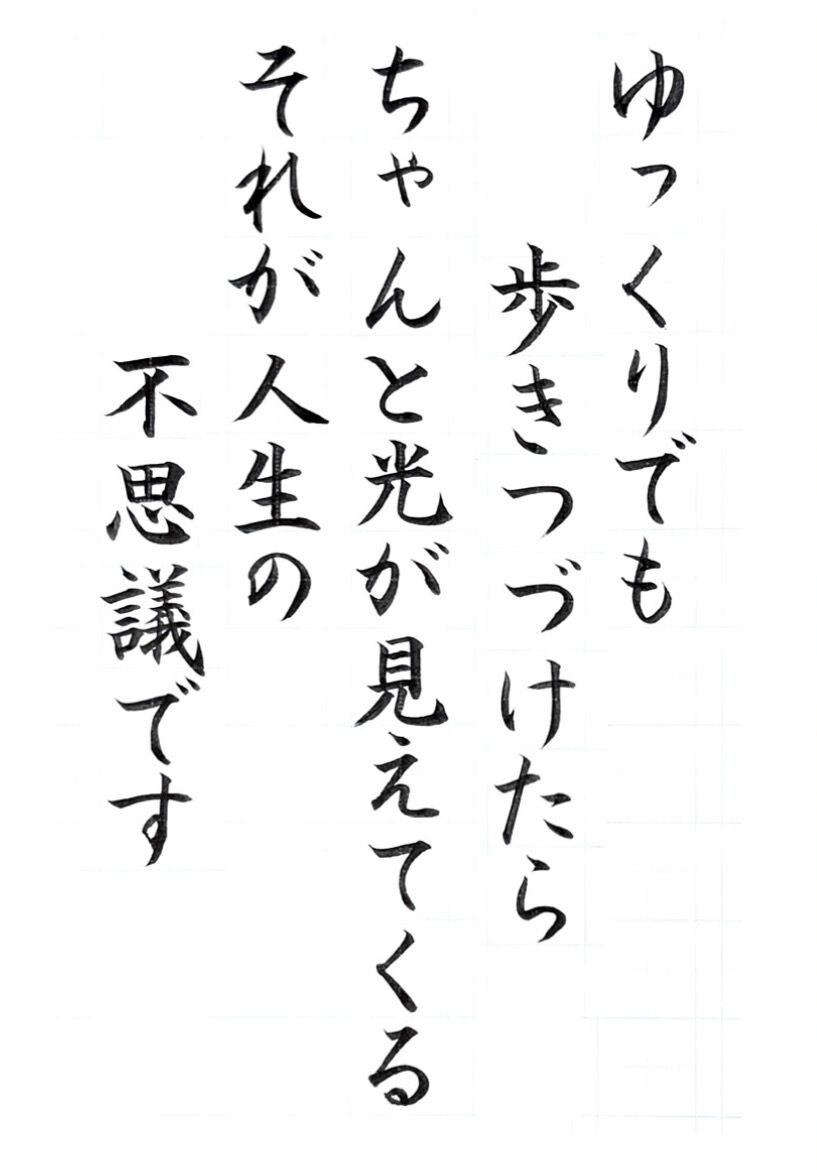 ゆっくりでも
歩きつづけたら
ちゃんと光が見えてくる
それが人生の
不思議です